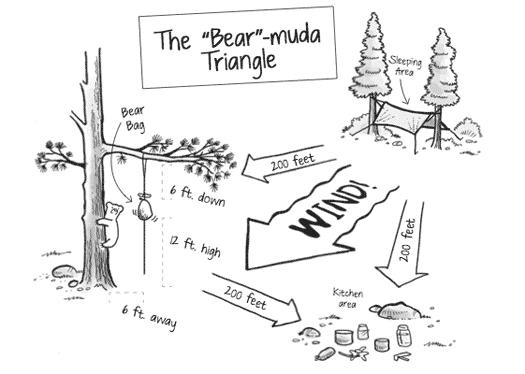 The "Bear"-muda
Triangle
Sleeping
Area
Bear
Bag
200 feet
6 ft. down
WIND!
12 ft. high
200 feet
200 feet
Kitchen
area
6 ft. away